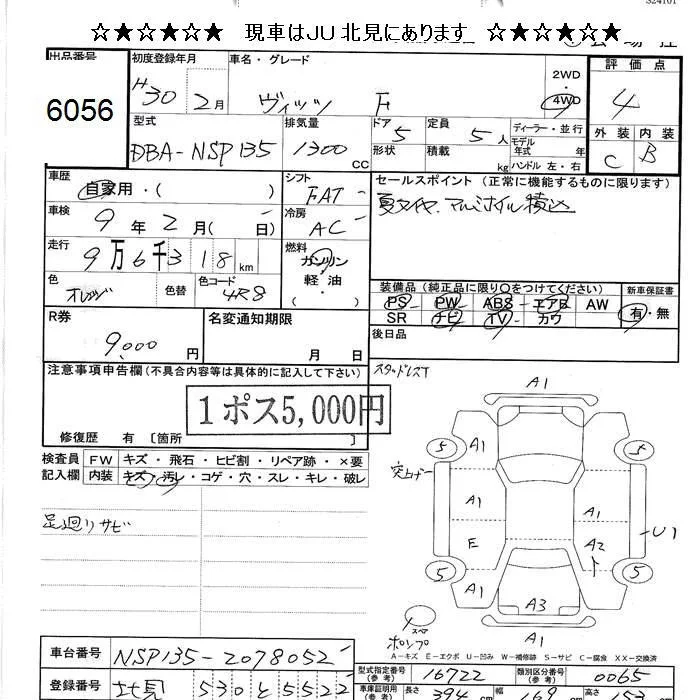 ☆★☆★☆★ 現車はJU北見にあります ☆★☆★☆★
出品番号 6056
初度登録年月 H30 2月
車名・グレード ヴィッツ F
2WD 4WD
評価点 4
外装 C 内装 B
型式 DBA-NSP135
排気量 1300 CC
ドア 5 形状
定員 5人 積載 kg
ディーラー・並行
モデル年式 年
ハンドル 左・右
車歴 自家用・( )
シフト FAT
セールスポイント (正常に機能するものに限ります)
夏タイヤ、アルミホイル積込
車検 9年2月( )
冷房 AC
走行 9万6千318km
燃料 ガソリン 軽油・( )
色 オレンジ 色替 色コード 4R8
装備品 (純正品に限り○をつけてください)
PS PW ABS エアB AW
SR ナビ TV カワ
新車保証書 有・無
R券 9,000円
名変通知期限 月 日
後日品
注意事項申告欄 (不具合内容等は具体的に記入して下さい)
スタッドレスT
1ポス5,000円
修復歴 有 [箇所
検査員記入欄 FW キズ・飛石・ヒビ割・リペア跡・×要
内装 キズ・汚レ・コゲ・穴・スレ・キレ・破レ
足廻リサビ
A1
5 A1 5
突上げ
A1 A1
E A2 U1
5 A1 A3 A1 5
スペア
ポンプ
A1
A-キズ E-エクボ U-凹み W-補修跡 S-サビ C-腐食 XX-交換済
車台番号 NSP135-2078052
型式指定番号(参考) 16722 類別区分番号(参考) 0065
登録番号 北見 530 と 5522
車庫証明用(参考) 長 394 cm 幅 169 cm 高 153 cm